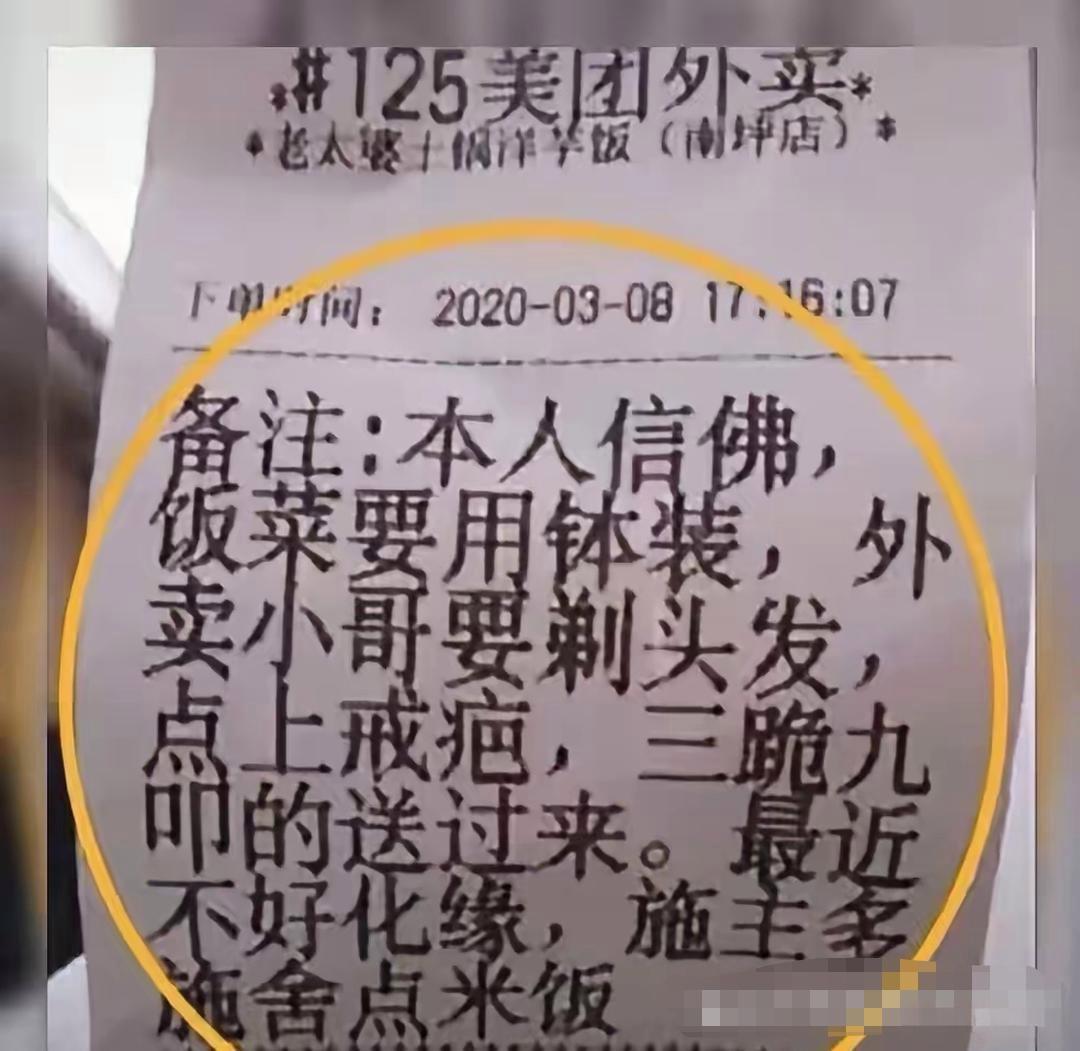 *#125美团外卖*
*老太婆土锅洋芋饭（南坪店）*
下单时间： 2020-03-08 17:16:07
备注:本人信佛，
饭菜要用钵装，外
卖小哥要剃头发，
点上戒疤，三跪九
叩的送过来。最近
不好化缘，施主多
施舍点米饭